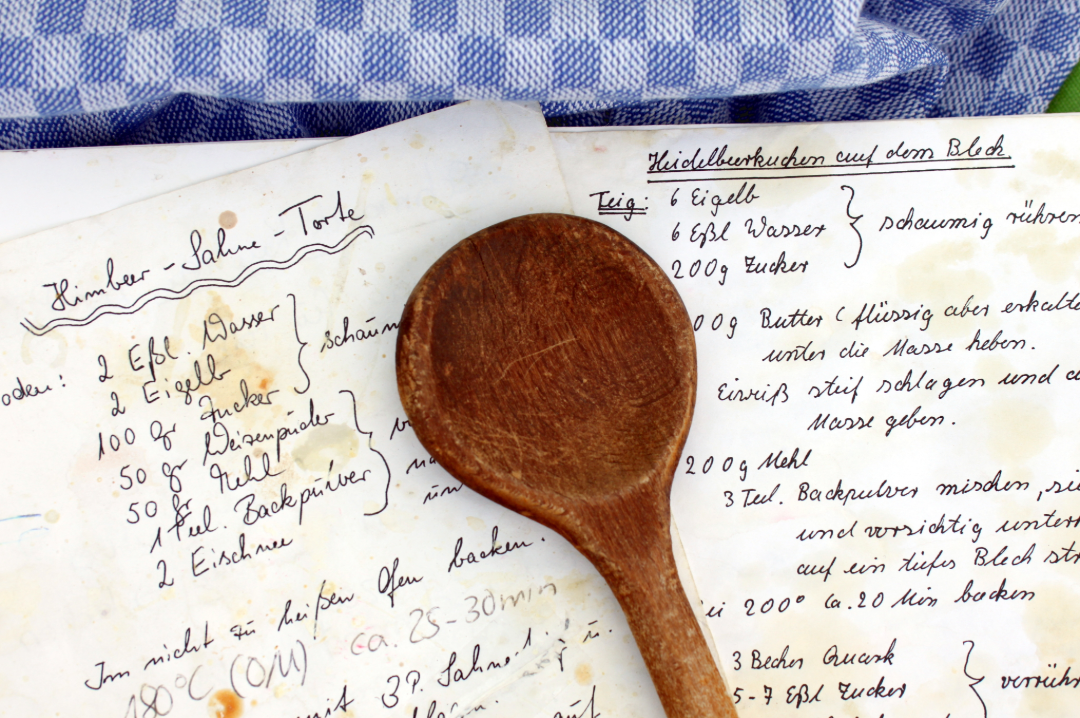 Himbeer - Sahne - Torte
oden:
2 Eßl. Wasser
2 Eigelb
100 gr Zucker
schaum
50 gr Weizenpuder
50 gr Mehl
1 Teel. Backpulver
2 Eischnee
Im nicht zu heißen Ofen backen.
180°C (O/U) ca. 25-30min
mit 3 P. Sahne
u.
auf
Heidelbeerkuchen auf dem Blech
Teig: 6 Eigelb
6 Eßl Wasser
200g Zucker
schaumig rühren
00g Butter (flüssig aber erkalte
unter die Masse heben.
Eiweiß steif schlagen und
Masse geben.
200g Mehl
3 Teel. Backpulver mischen, sie
und vorsichtig unter
auf ein tiefes Blech str
ei 200° ca. 20 Min backen
3 Becher Quark
5-7 Eßl Zucker
verrühr